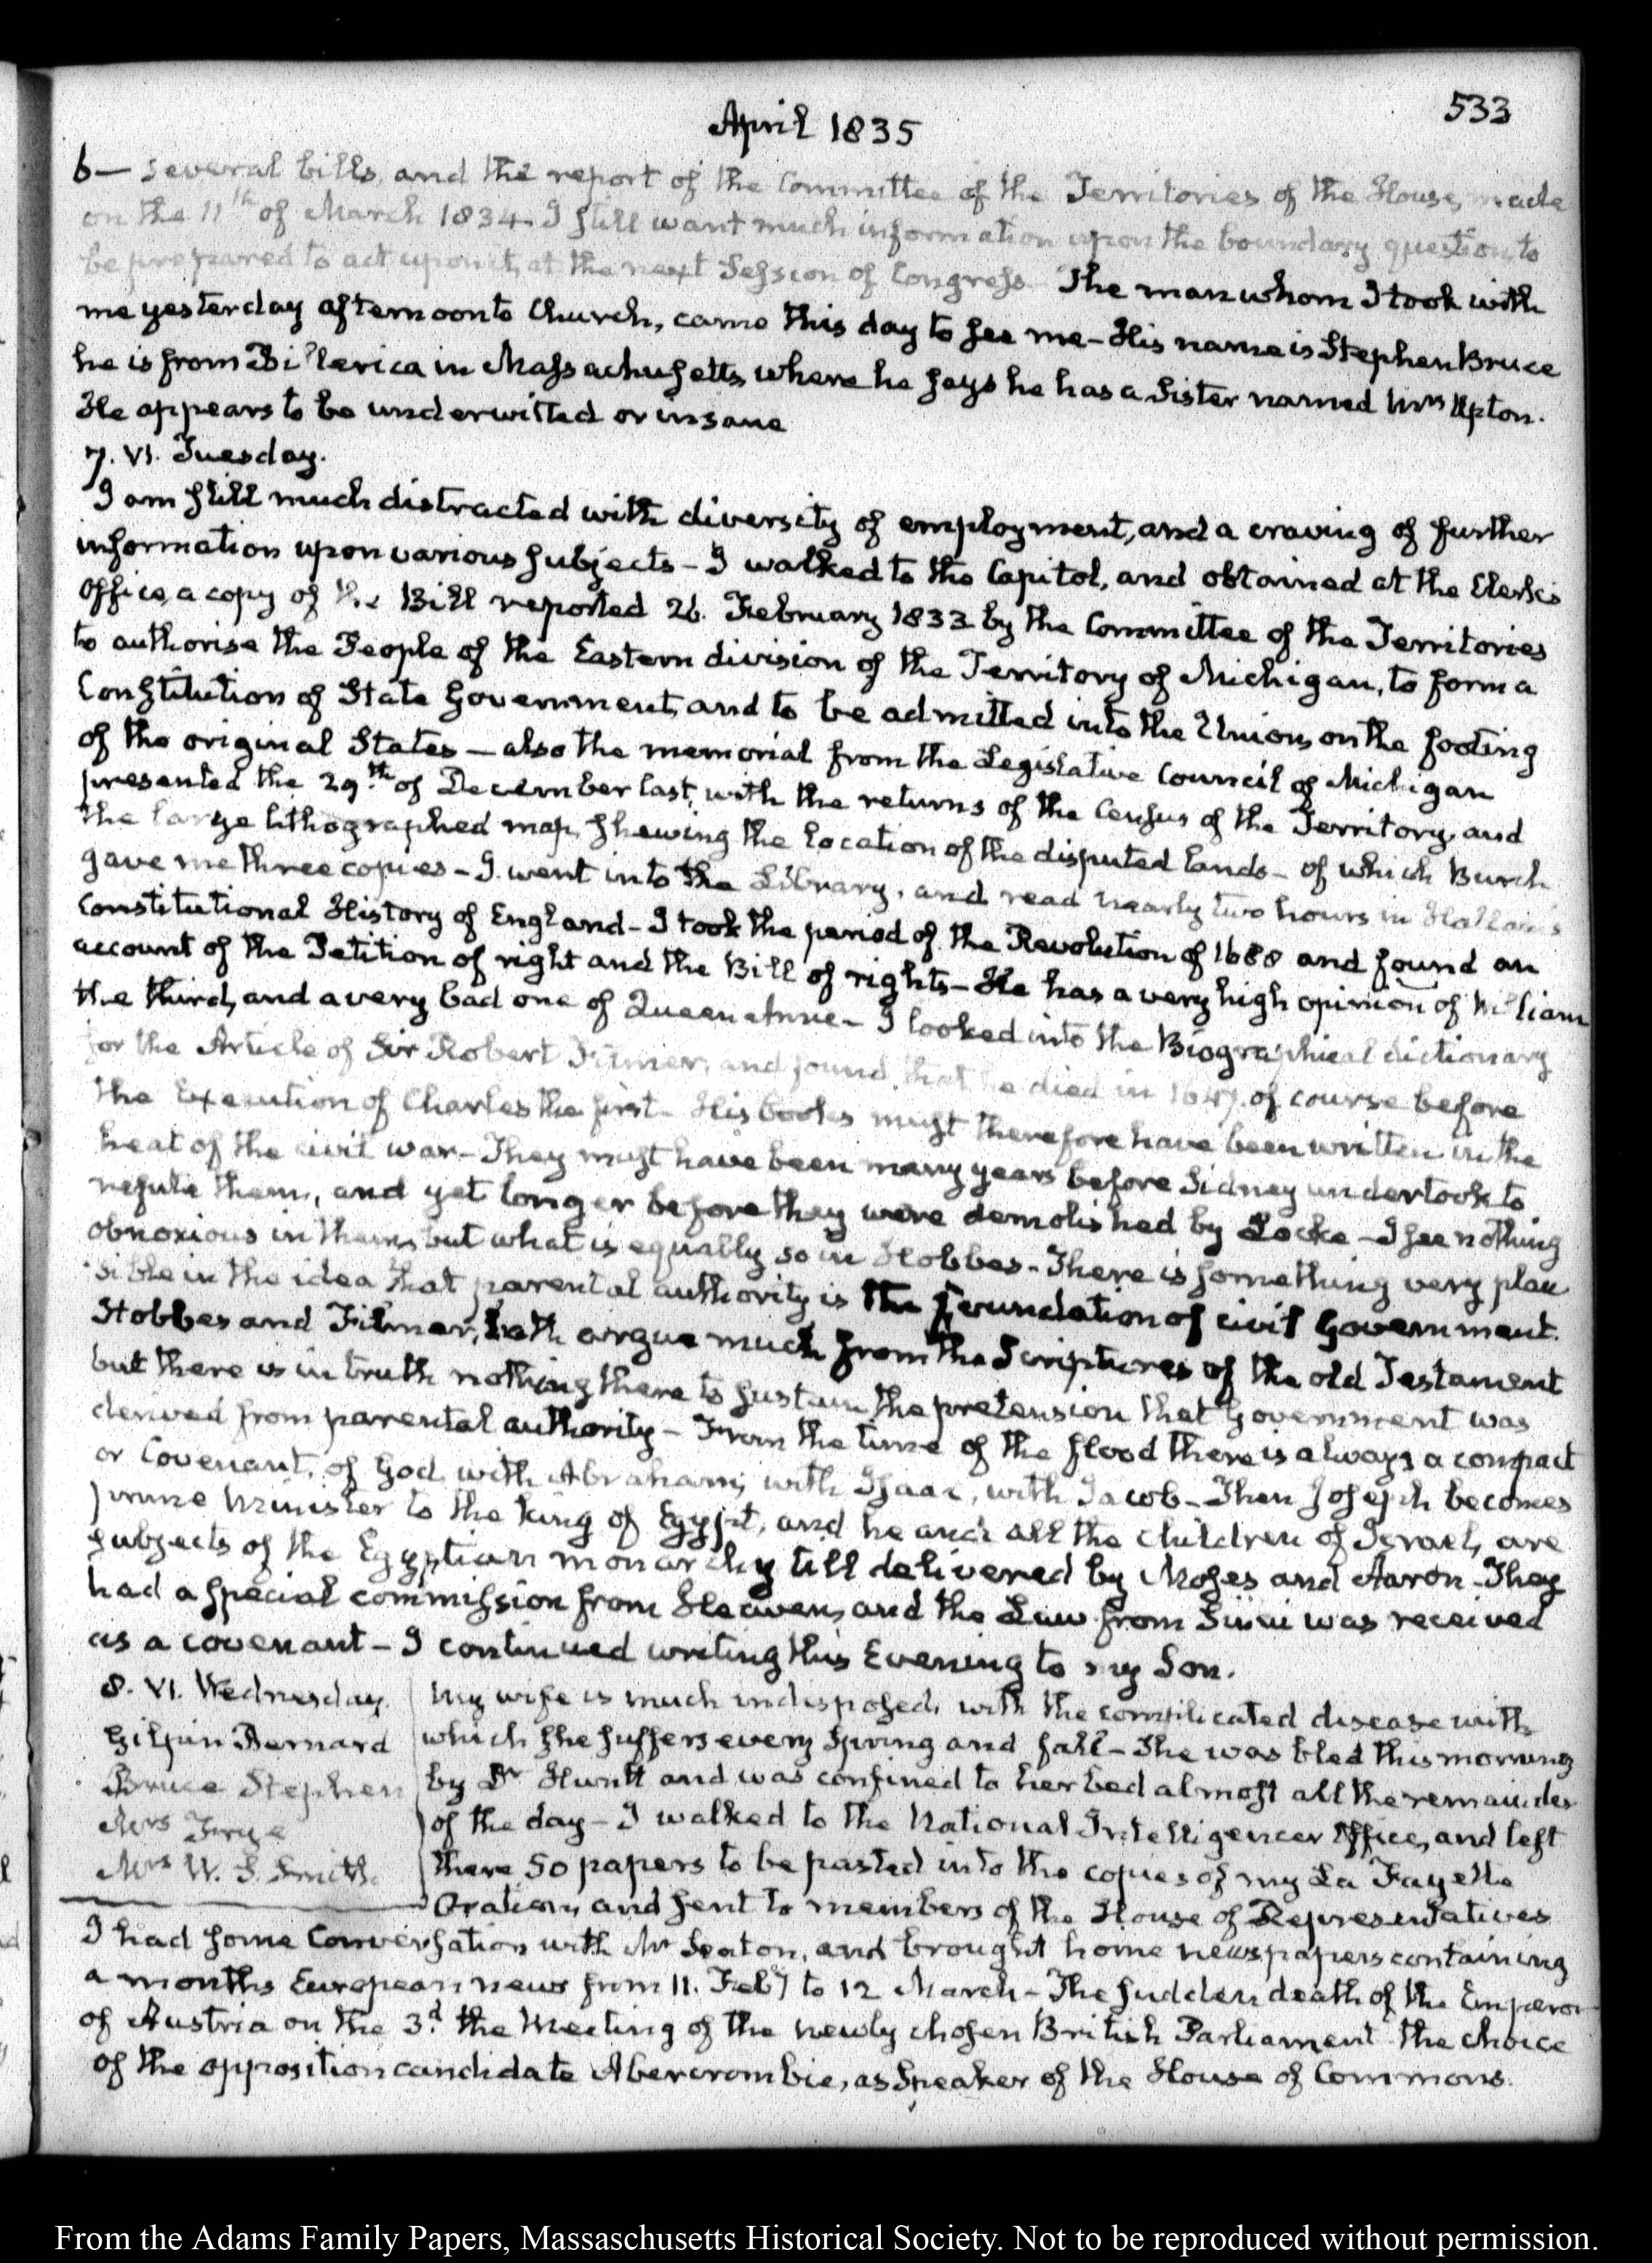 533
April 1835
6— several bills, and the report of the Committee of the Territories of the House, made
on the 11th of March 1834. I still want much information upon the boundary question, to
be prepared to act upon it, at the next Session of Congress. The man whom I took with
me yesterday afternoon to Church, came this day to see me - His name is Stephen Bruce
he is from Billerica in Massachusetts, where he says he has a Sister named Mrs Upton.
He appears to be underwitted or insane
7. VI. Tuesday.
I am still much distracted with diversity of employment, and a craving of further
information upon various subjects - I walked to the Capitol, and obtained at the Clerk's
Office, a copy of the Bill reported 26. February 1833 by the Committee of the Territories
to authorise the People of the Eastern division of the Territory of Michigan, to form a
Constitution of State Government, and to be admitted into the Union, on the footing
of the original States — also the memorial from the Legislative Council of Michigan
presented the 29th of December last, with the returns of the Census of the Territory, and
the large lithographed map, shewing the location of the disputed lands - of which Burch
gave me three copies - I went into the Library, and read nearly two hours in Hallam's
Constitutional History of England - I took the period of the Revolution of 1688 and found an
account of the Petition of right and the Bill of rights - He has a very high opinion of William
the third, and a very bad one of Queen Anne - I looked into the Biographical dictionary
for the Article of Sir Robert Filmer, and found that he died in 1647. of course before
the Execution of Charles the first - His books must therefore have been written in the
heat of the civil war - They must have been many years before Sidney undertook to
refute them, and yet longer before they were demolished by Locke - I see nothing
obnoxious in them, but what is equally so in Hobbes - There is something very plau
sible in the idea that parental authority is the foundation of civil Government.
Hobbes and Filmer, both argue much from the Scriptures of the old Testament
but there is in truth nothing there to sustain the pretension that Government was
derived from parental authority - From the time of the flood there is always a compact
or Covenant, of God, with Abraham, with Isaac, with Jacob - Then Joseph becomes
prime Minister to the king of Egypt, and he and all the children of Israel, are
subjects of the Egyptian monarchy till delivered by Moses and Aaron - They
had a special commission from Heaven, and the Law from Sinai was received
as a covenant - I continued writing this Evening to my Son.
8. VI. Wednesday.
Gilpin Bernard
Bruce Stephen
Mrs Frye
Mrs W. S. Smith.
My wife is much indisposed, with the complicated disease with
which she suffers every Spring and fall - She was bled this morning
by Dr Huntt and was confined to her bed almost all the remainder
of the day - I walked to the National Intelligencer Office, and left
there 50 papers to be pasted into the copies of my La Fayette
Oration, and sent to members of the House of Representatives
I had some Conversation with Mr Seaton, and brought home newspapers containing
a months European news from 11. Feby to 12 March - The sudden death of the Emperor
of Austria on the 3d. the Meeting of the newly chosen British Parliament the choice
of the opposition candidate Abercrombie, as Speaker of the House of Commons.
From the Adams Family Papers, Massachusetts Historical Society. Not to be reproduced without permission.